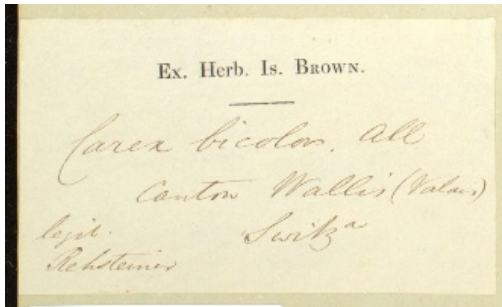 Ex. Herb. Is. Brown.
Carex bicolor. All
Canton Wallis (Valais)
legit. Switzª
Rehsteiner